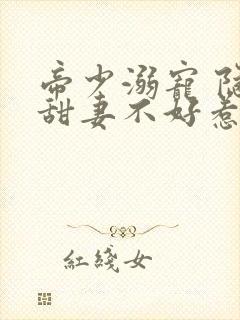 帝少溺寵
甜妻不好惹
紅綫女